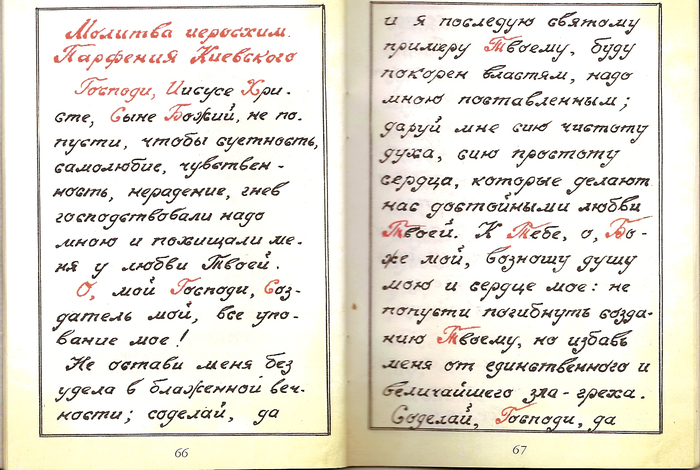 Молитва иеросхим.
Парфения Киевского
Господи, Иисусе Хри-
сте, Сыне Божий, не по-
пусти, чтобы суетность,
самолюбие, чувствен-
ность, нерадение, гнев
господствовали надо
мною и похищали ме-
ня у любви Твоей.
О, мой Господи, Соз-
датель мой, все упо-
вание мое!
Не остави меня без
удела в блаженной веч-
ности; соделай, да
66
и я последую святому
примеру Твоему, буду
покорен властям, надо
мною поставленным;
даруй мне сию чистоту
духа, сию простоту
сердца, которые делают
нас достойными любви
Твоей. К Тебе, о, Бо-
же мой, возношу душу
мою и сердце мое: не
попусти погибнуть созда-
нию Твоему, но избавь
меня от единственного и
величайшего зла - греха.
Соделай, Господи, да
67